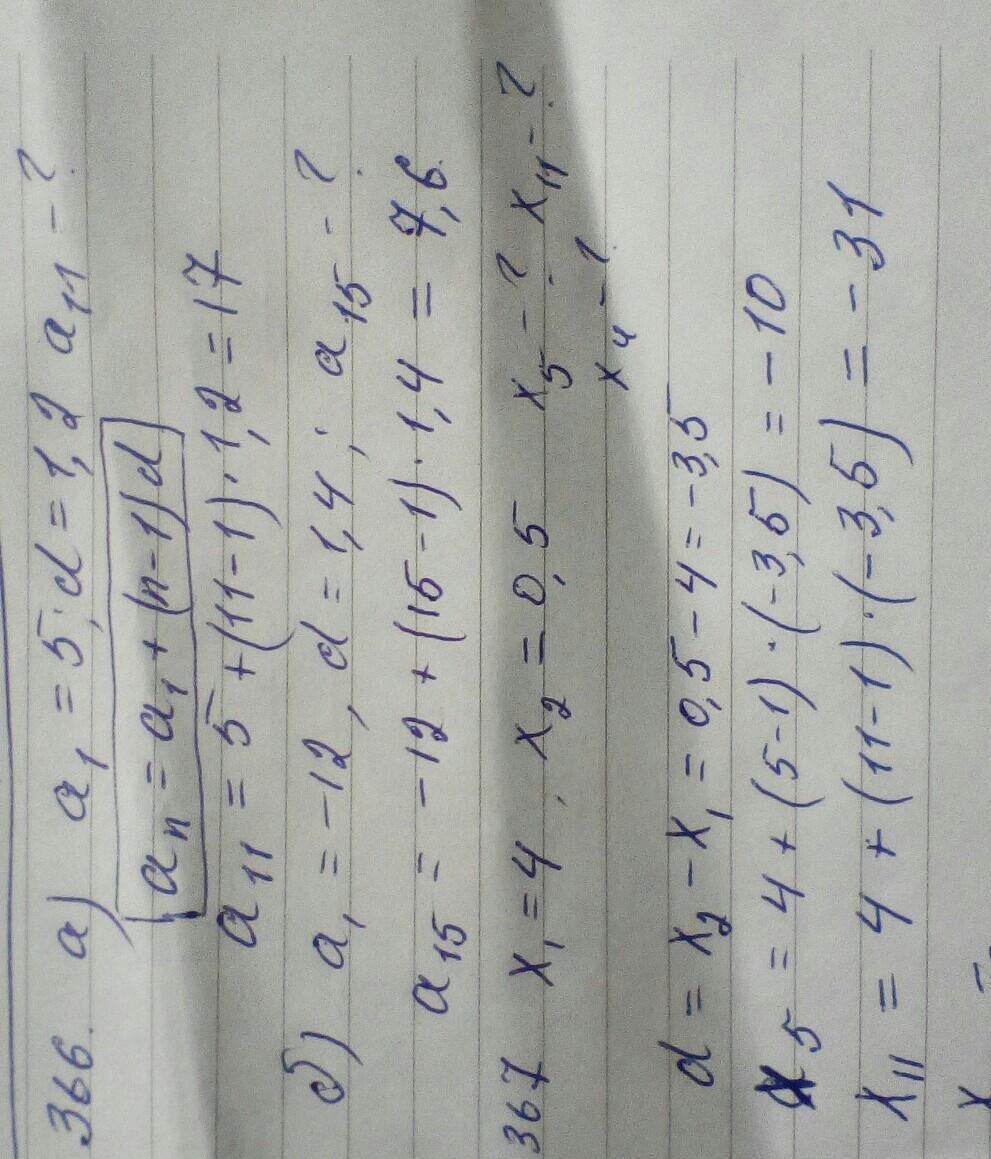 366. а) a₁ = 5; d = 1,2 a₁₁ - ?
aₙ = a₁ + (n-1)d
a₁₁ = 5 + (11-1)·1,2 = 17
б) a₁ = -12, d = 1,4; a₁₅ - ?
a₁₅ = -12 + (15-1)·1,4 = 7,6.
367 x₁ = 4, x₂ = 0,5 x₅ - ? x₁₁ - ?
x₄ - ?
d = x₂ - x₁ = 0,5 - 4 = -3,5
x₅ = 4 + (5-1)·(-3,5) = -10
x₁₁ = 4 + (11-1)·(-3,5) = -31